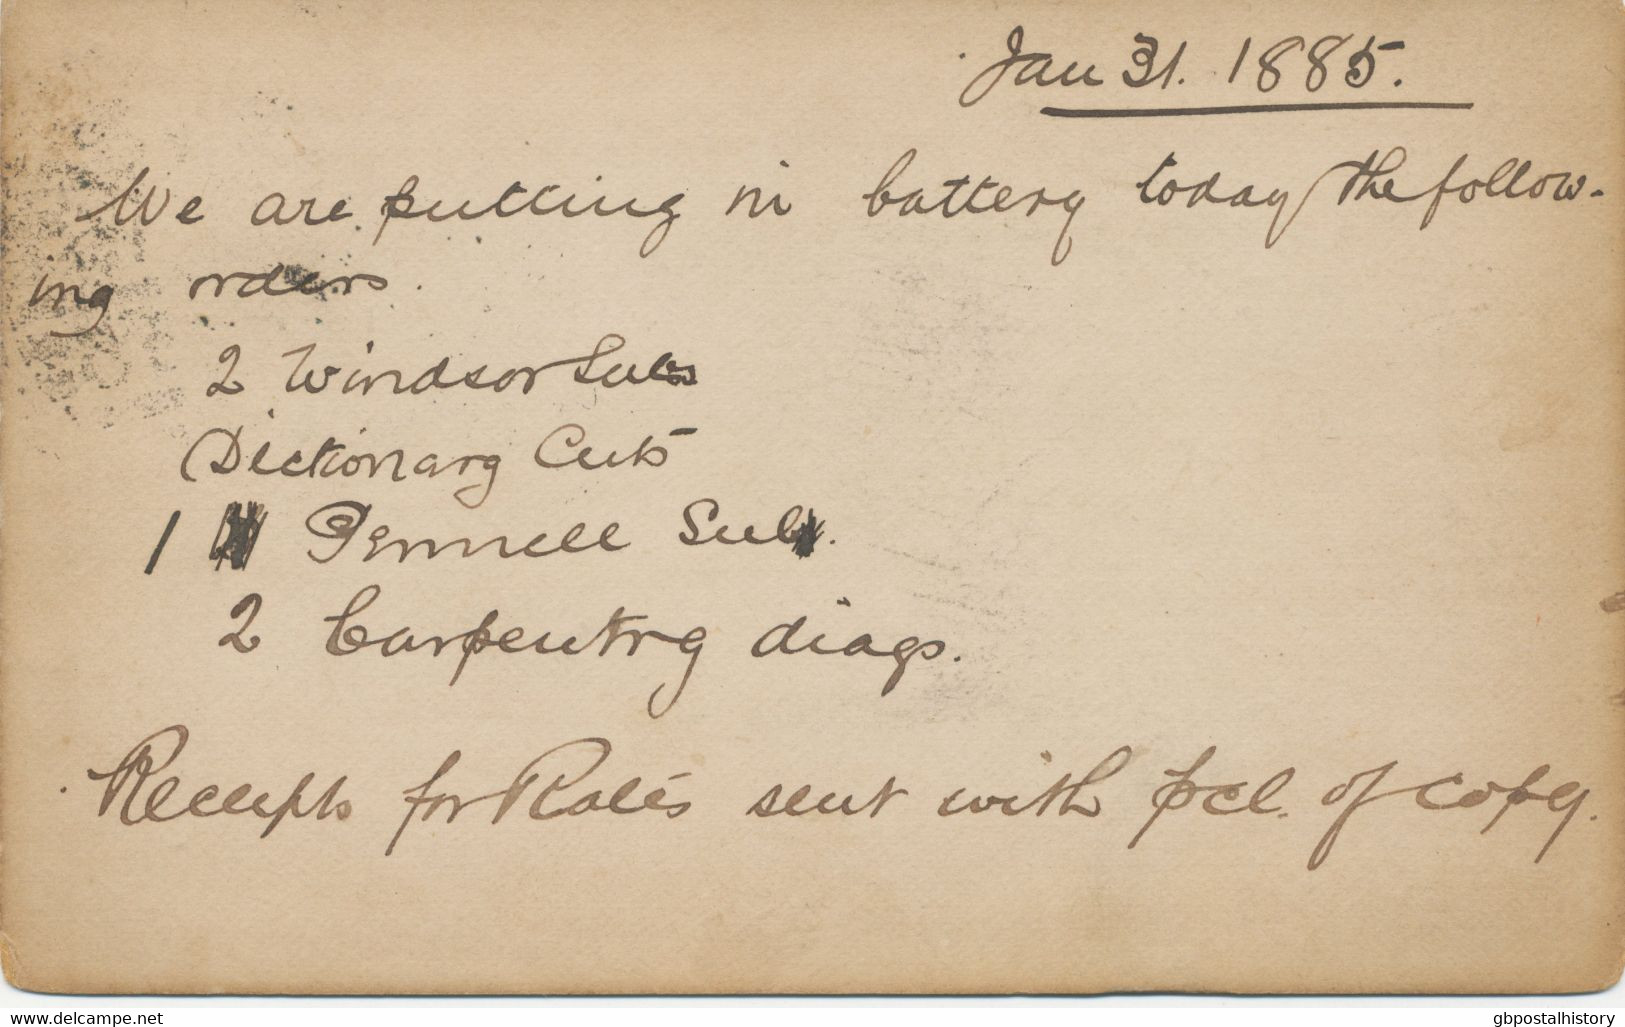 Jan 31. 1885.
We are putting in battery today the follow-
ing orders.
2 Windsor Subs
Dictionary Cuts
1 Pennell Sub.
2 Carpentry diags.
Receipts for sent with pcl. of copy.
www.delcampe.net
gbpostalhistory